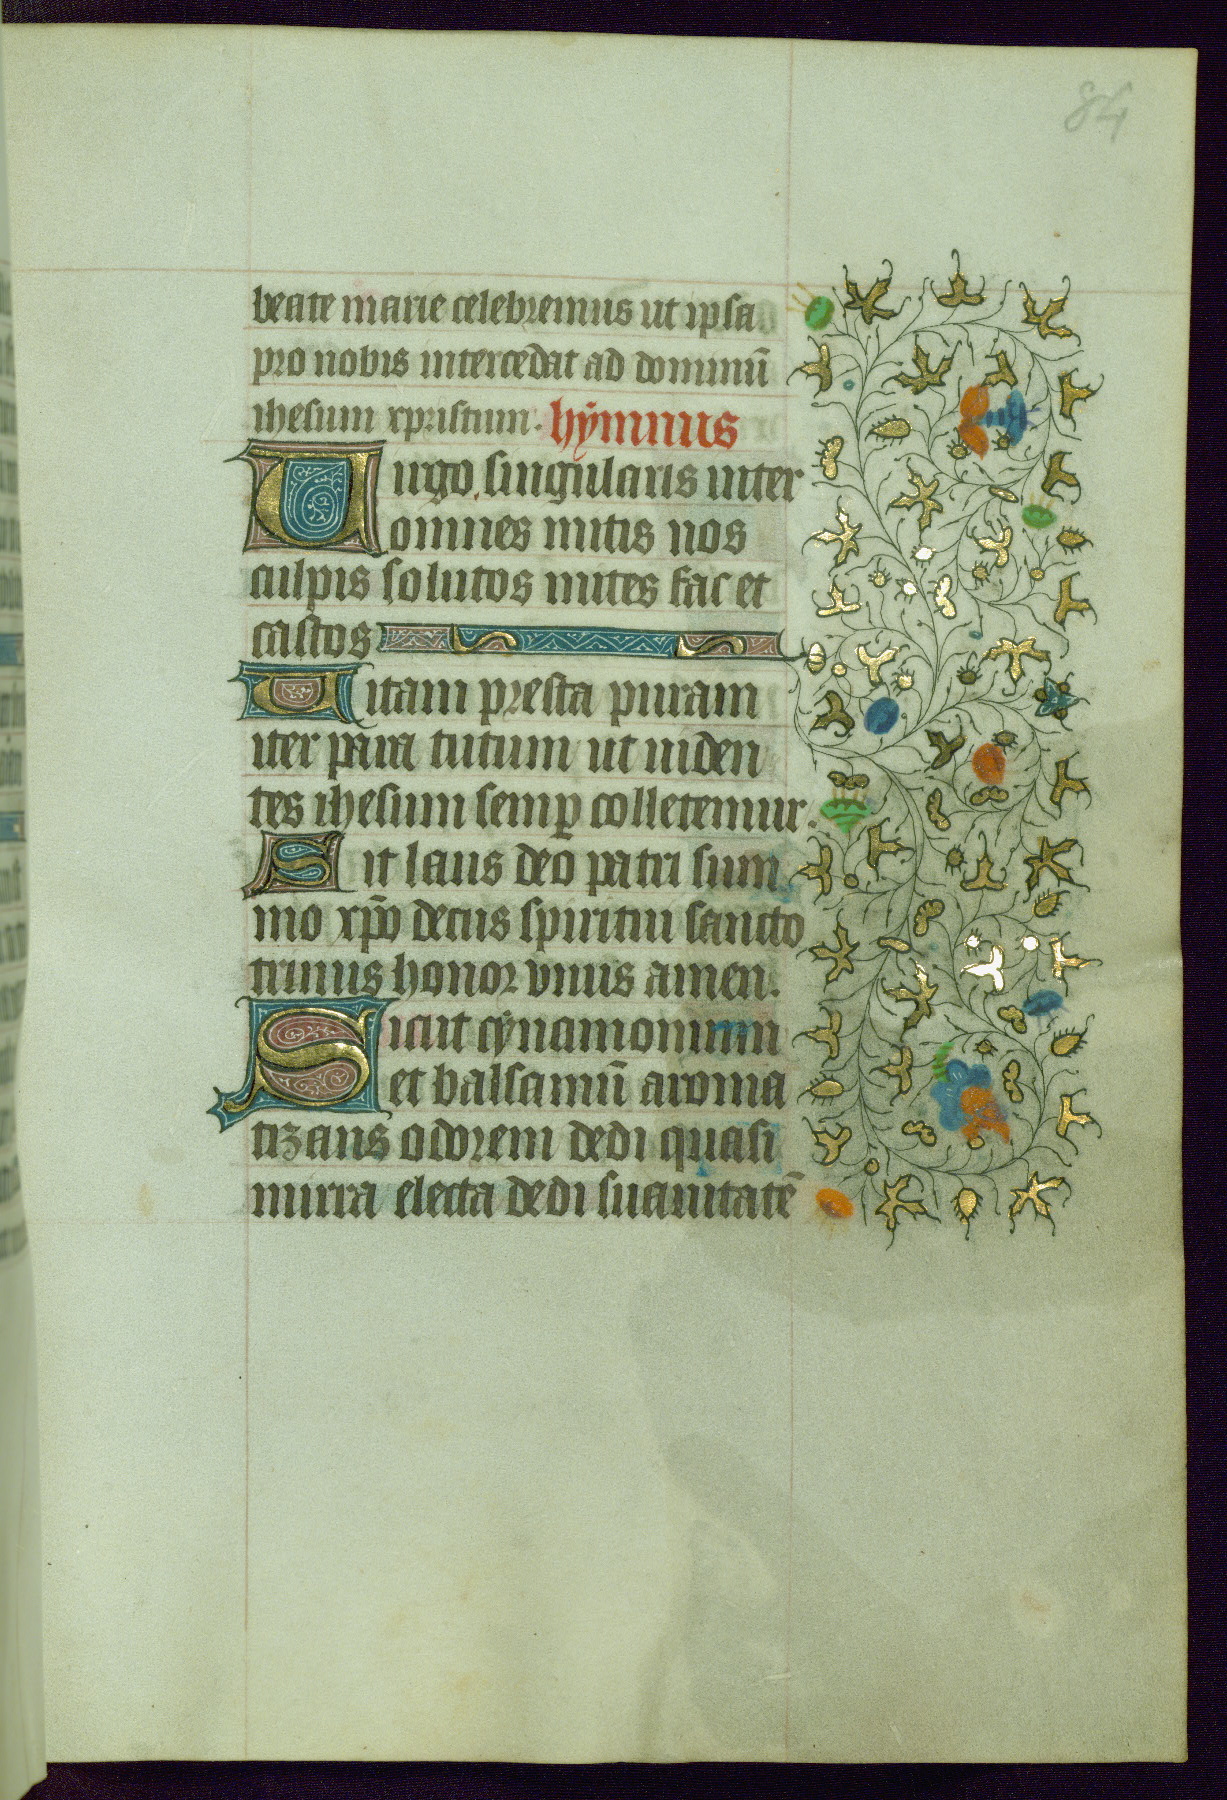 84
beate marie celebremus ut ipsa
pro nobis intercedat ad dominū
ihesum xpristum. hỹmnus
Uirgo singularis inter
omnes mitis nos
culpis solutos mites fac et
castos
Uitam presta puram
iter para tutum ut uiden
tes ihesum semꝑ colletemur.
Sit laus deo patri sum
mo xp̄o decus spiritui sancto
trinus honor vnus amen.
Sicut cynamomum
et balsamū aroma
tizans odorem dedi quasi
mirra electa dedi suauitatē